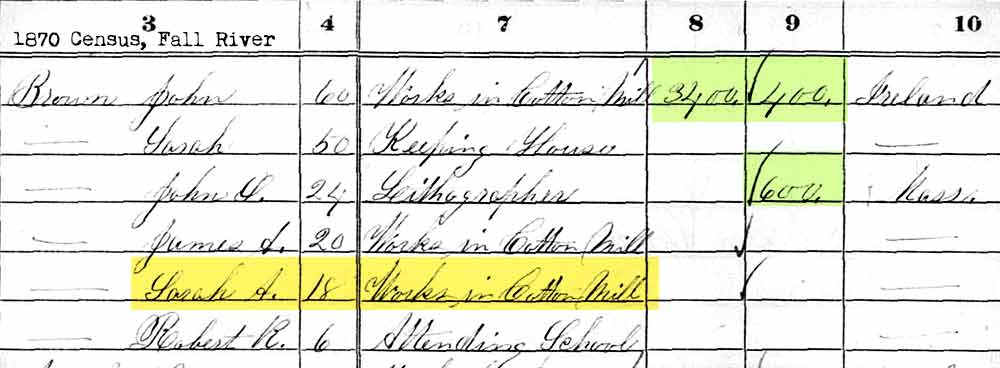 3 4 7 8 9 10
1870 Census, Fall River
Brown John 60 Works in Cotton Mill 3400. 400. Ireland
— Sarah 50 Keeping House —
— John 24 Lithographer 600. Mass.
— James 20 Works in Cotton Mill —
— Sarah A. 18 Works in Cotton Mill —
— Robert R. 6 Attending School —